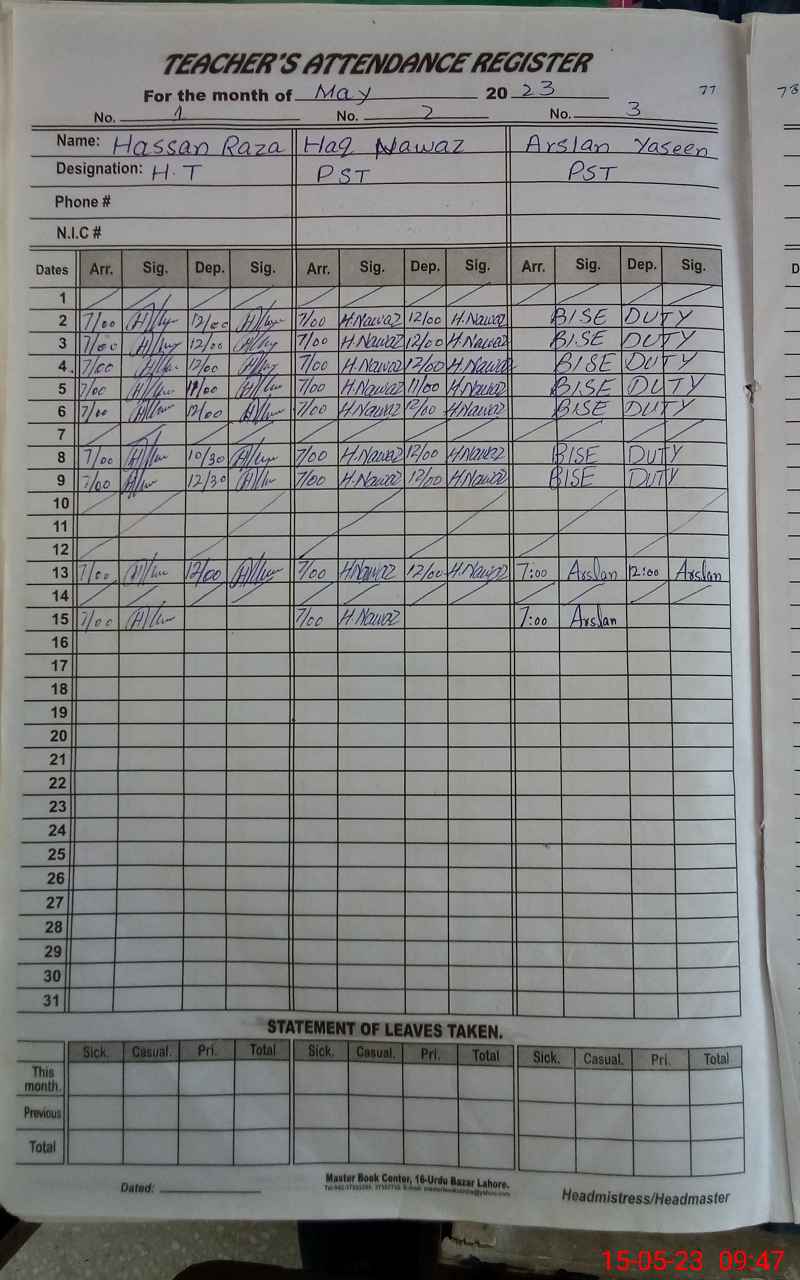 TEACHER'S ATTENDANCE REGISTER
For the month of May 2023 77 78
No. 1 No. 2 No. 3
Name: Hassan Raza Haq Nawaz Arslan Yaseen
Designation: H.T PST PST
Phone #
N.I.C #
Dates Arr. Sig. Dep. Sig. Arr. Sig. Dep. Sig. Arr. Sig. Dep. Sig. D
1
2 7/00 12/00 7/00 H.Nawaz 12/00 H.Nawaz BISE DUTY
3 7/00 12/00 7/00 H.Nawaz 12/00 H.Nawaz BISE DUTY
4 7/00 12/00 7/00 H.Nawaz 12/00 H.Nawaz BISE DUTY
5 7/00 11/00 7/00 H.Nawaz 11/00 H.Nawaz BISE DUTY
6 7/00 12/00 7/00 H.Nawaz 12/00 H.Nawaz BISE DUTY
7
8 7/00 10/30 7/00 H.Nawaz 12/00 H.Nawaz BISE DUTY
9 7/00 12/30 7/00 H.Nawaz 12/00 H.Nawaz BISE DUTY
10
11
12
13 7/00 12/00 7/00 H.Nawaz 12/00 H.Nawaz 7:00 Arslan 12:00 Arslan
14
15 7/00 7/00 H.Nawaz 7:00 Arslan
16
17
18
19
20
21
22
23
24
25
26
27
28
29
30
31
STATEMENT OF LEAVES TAKEN.
Sick. Casual. Pri. Total Sick. Casual. Pri. Total Sick. Casual. Pri. Total
This month.
Previous
Total
Dated: Master Book Center, 16-Urdu Bazar Lahore. Headmistress/Headmaster
15-05-23 09:47